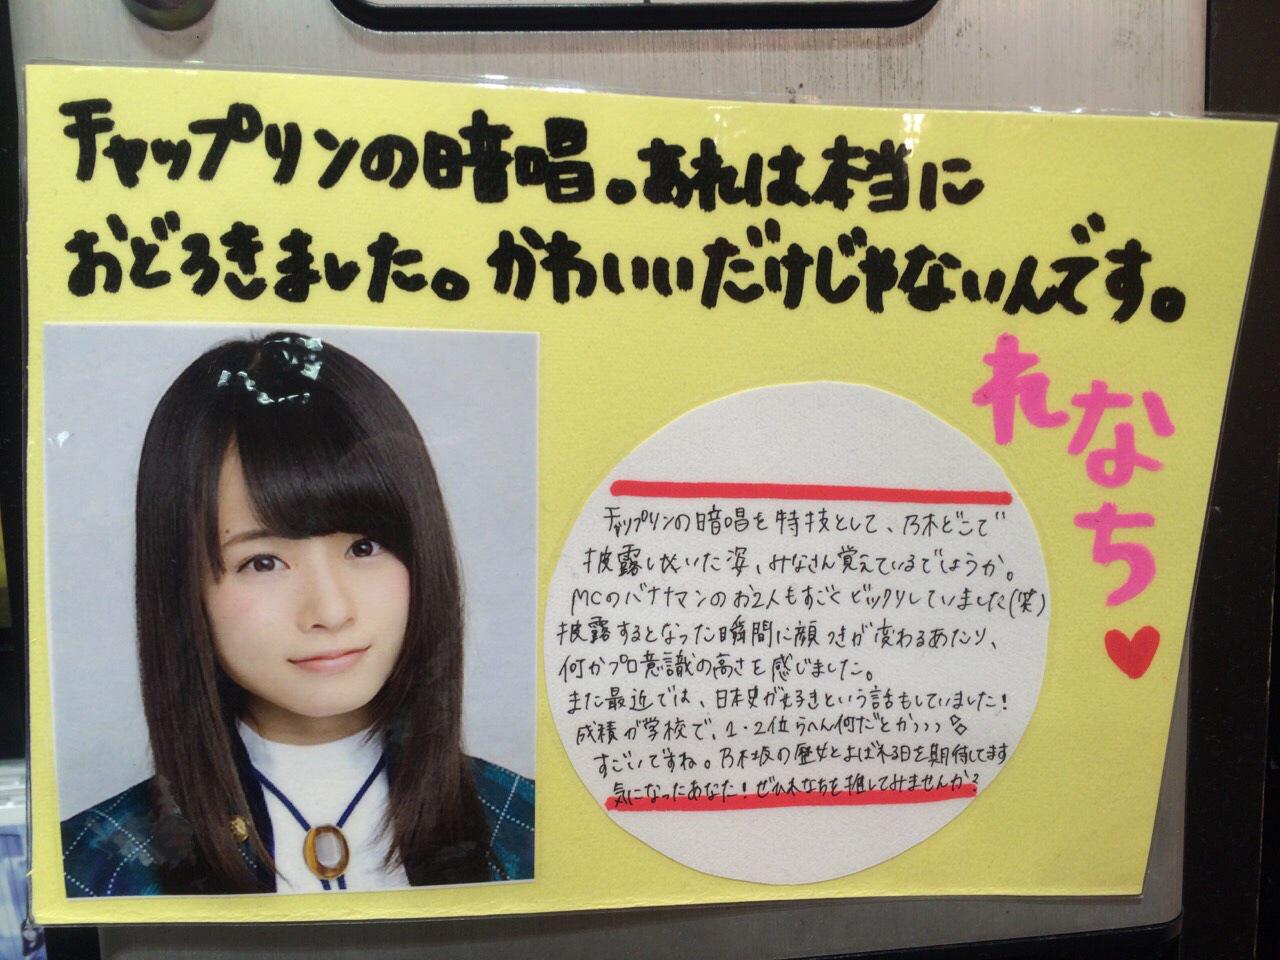 チャップリンの暗唱。あれは本当に
おどろきました。かわいいだけじゃないんです。
れなち♥
チャップリンの暗唱を特技として、乃木どこで
披露していた姿、みなさん覚えているでしょうか。
MCのバナナマンのお2人もすごくビックリしていました(笑)
披露するとなった瞬間に顔つきが変わるあたり、
何かプロ意識の高さを感じました。
また最近では、日本史が好きという話もしていました!
成績が学校で、1・2位らへん何だとかっっっ
すごいですね。乃木坂の歴女とよばれる日を期待してます
気になったあなた!ぜひれなちを推してみませんか?